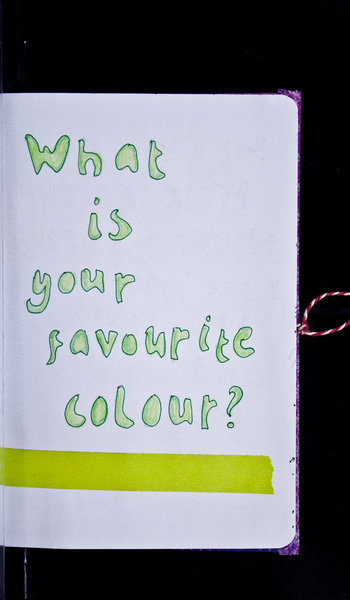 What
is
your
favourite
colour?